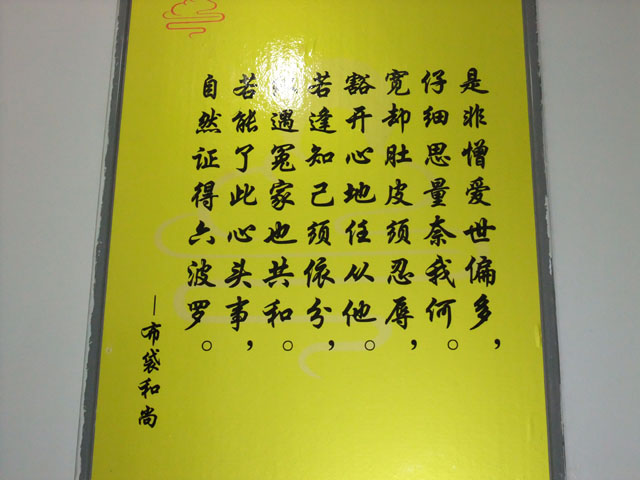 是非憎爱世偏多，
仔细思量奈我何。
宽却肚皮须忍辱，
豁开心地任从他。
若逢知己须依分，
遇冤家也共和。
若能了此心头事，
自然证得六波罗。
—布袋和尚